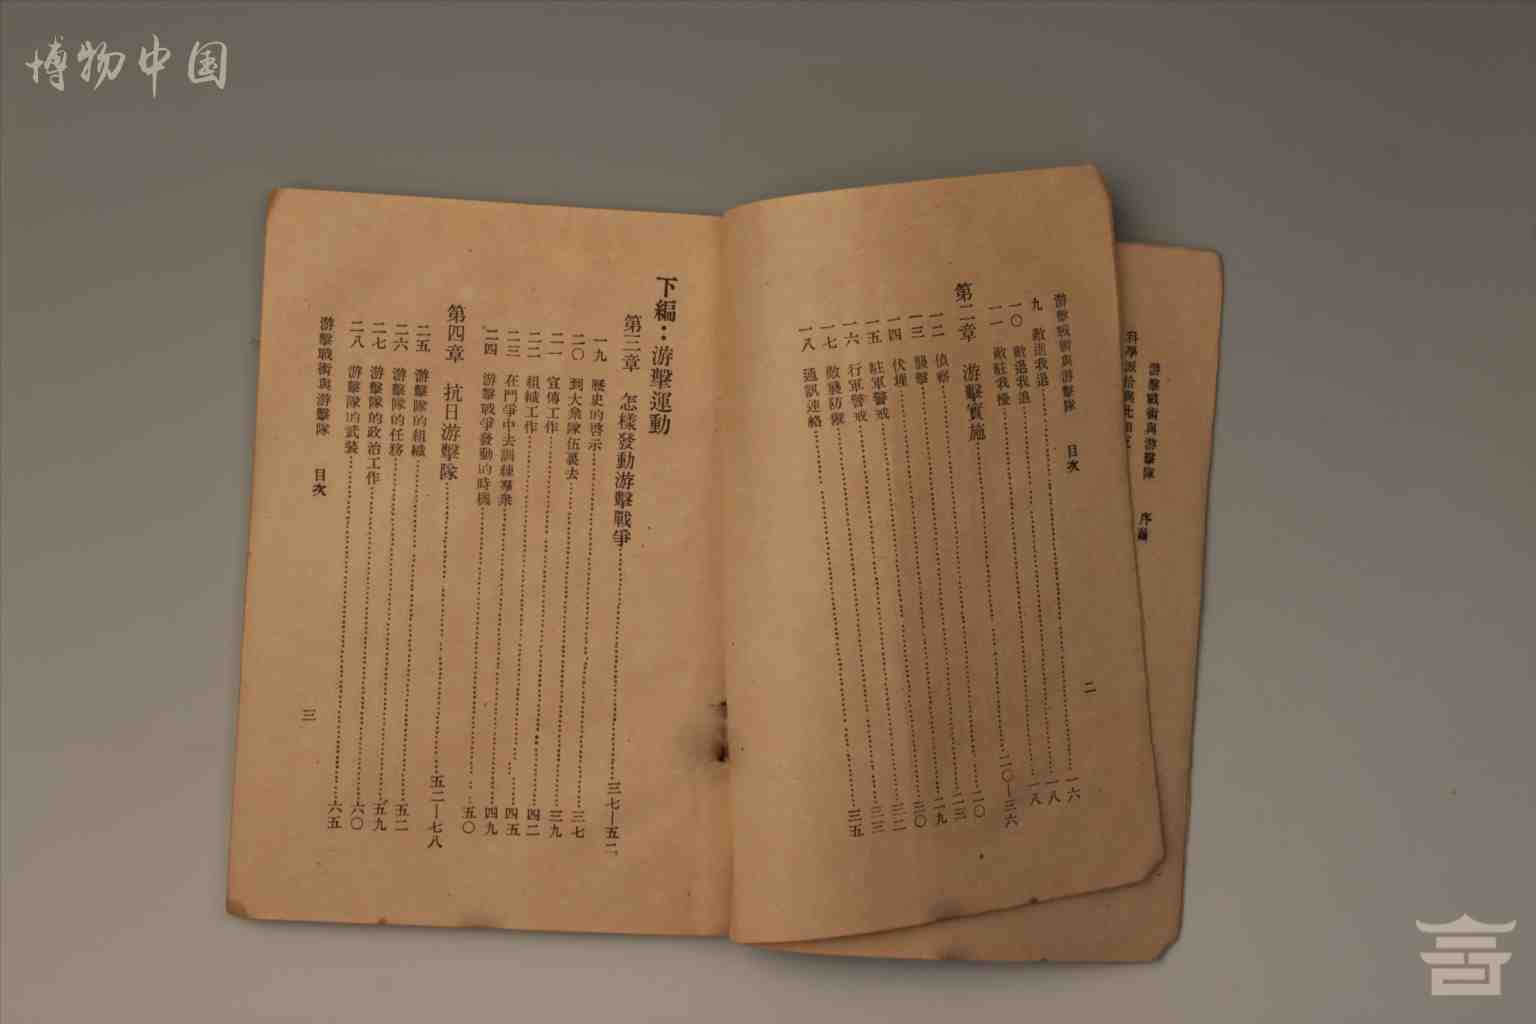 博物中国
游擊戰術與游擊隊 序言
游擊戰術與游擊隊 目次
九 敵進我退……一六
一〇 敵退我追……一八
一一 敵駐我擾……一八
第二章 游擊實施……二〇—三六
一二 偵察……二〇
一三 襲擊……二三
一四 伏擊……二九
一五 駐軍警戒……三〇
一六 行軍警戒……三二
一七 敵襲防禦……三三
一八 通訊連絡……三五
二
下編：游擊運動
第三章 怎樣發動游擊戰爭……三七—五二
一九 歷史的啓示……三七
二〇 到大衆隊伍裏去……三九
二一 宣傳工作……四二
二二 組織工作……四五
二三 在鬥爭中去訓練羣衆……四九
二四 游擊戰爭發動的時機……五〇
第四章 抗日游擊隊……五二—七八
二五 游擊隊的組織……五二
二六 游擊隊的任務……五九
二七 游擊隊的政治工作……六〇
二八 游擊隊的武裝……六五
游擊戰術與游擊隊 目次
三